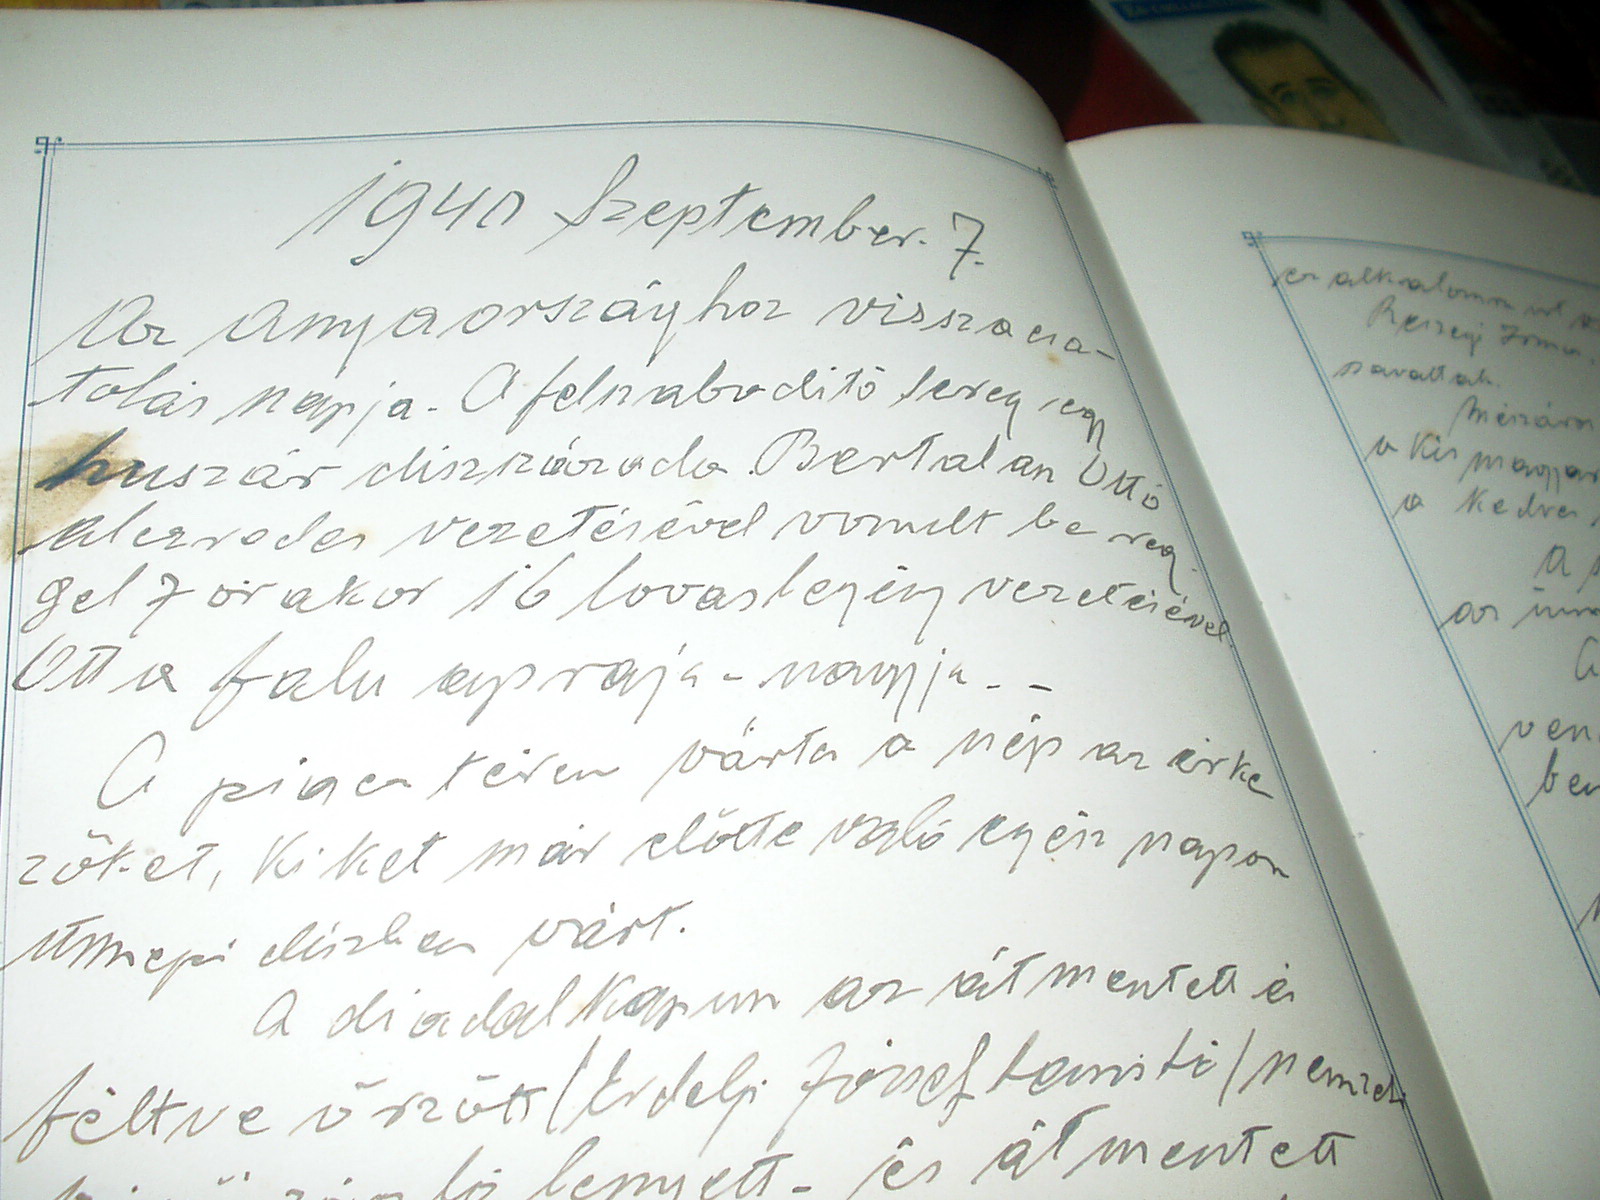 1940 Szeptember. 7.
Az Anyaországhoz visszacsa-
tolás napja. A felszabadító sereg egy
huszár díszszázada Bertalan Ottó
alezredes vezetésével vonult be reg-
gel 7 órakor 16 lovaslegény vezetésével
Ott a falu apraja - nagyja - -
A piacz téren várta a nép az érke
zőket, kiket már előtte való egész napon
ünnepi díszben várt.
A diadalkapun az átmentett és
féltve őrzött / Erdélyi József tanító / nemzeti
lengett - és átmentett
ez alkalommal
szavaltak.
Mészáros
a Kis magyar
a kedves
A
az ünn
A
ven
ben